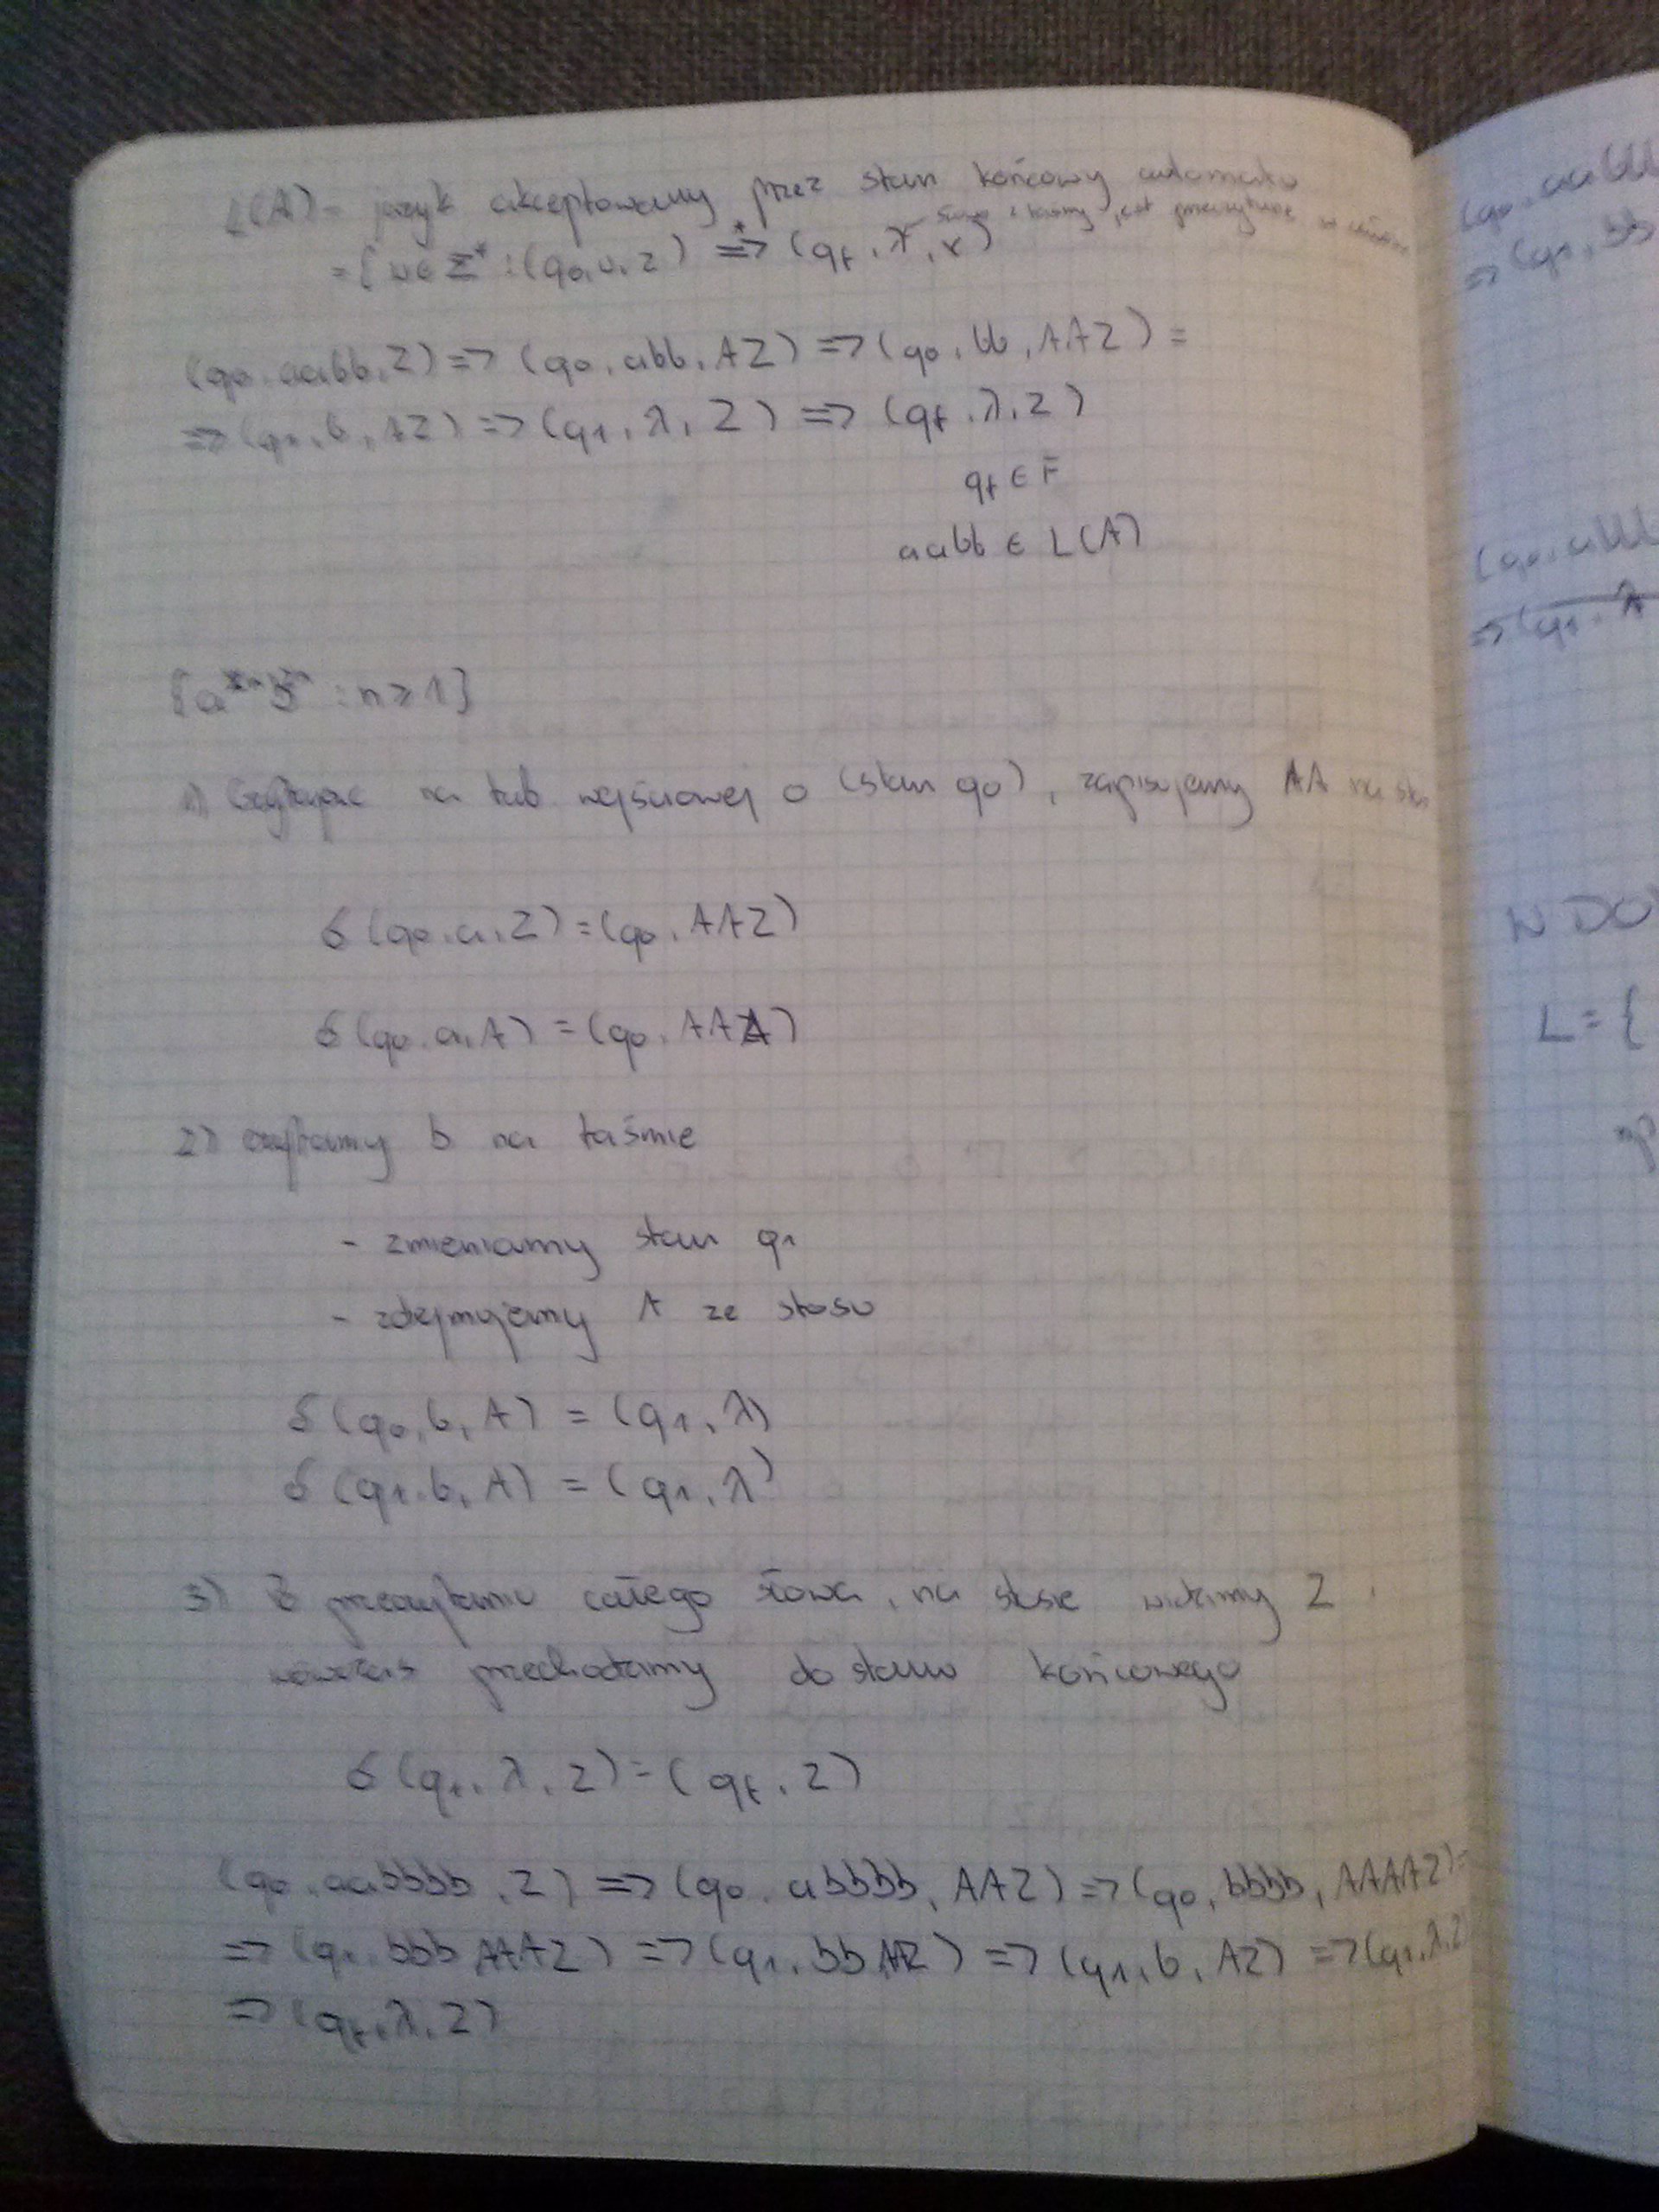 L(A) = język akceptowany przez stan końcowy automatu
słowo z taśmy jest przeczytane w
= { w ∈ Σ* : (q0, w, z) =>* (qf, λ, x)
(q0, aabb, Z) => (q0, abb, AZ) => (q0, bb, AAZ) =
=> (q1, b, AZ) => (q1, λ, Z) => (qf, λ, Z)
qf ∈ F
aabb ∈ L(A)
{a b : n ≥ 1}
1) Czytając na taś wejściowej a (stan q0), zapisujemy AA na sto
δ(q0, a, Z) = (q0, AAZ)
δ(q0, a, A) = (q0, AAA)
2) czytamy b na taśmie
- zmieniamy stan q1
- zdejmujemy A ze stosu
δ(q0, b, A) = (q1, λ)
δ(q1, b, A) = (q1, λ)
3) przeczytaniu całego słowa, na stosie widzimy Z
wówczas przechodzimy do stanu końcowego
δ(q1, λ, Z) = (qf, Z)
(q0, aabbbb, Z) => (q0, abbbb, AAZ) => (q0, bbbb, AAAAZ) =
=> (q1, bbb, AAAZ) => (q1, bb, AAZ) => (q1, b, AZ) => (q1, λ, Z
=> (qf, λ, Z)
(q0, aabbb
=> (q1, bb
(q0, abbb
=> (q1, λ
W DO
L = {
np